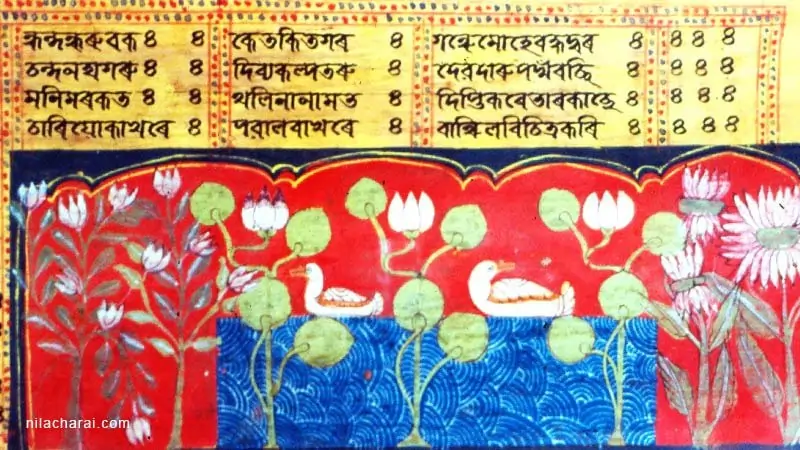 কুন্দকুৰুবক ৪ ৪ কেতকিতগৰ ৪ গন্ধেমোহে ৪ ৪ ৪ ৪
চন্দনঅগৰু ৪ ৪ দিব্যকল্পতৰু ৪ দেৱদাৰু ৪ ৪ ৪ ৪
মনিমৰকত ৪ ৪ থলিনানামত ৪ দিপ্তিকৰেতাৰকাছে ৪ ৪ ৪ ৪
চাৰিয়োকাখৰে ৪ পৱালবাখৰে ৪ বান্ধিলবিচিত্ৰকৰি ৪ ৪ ৪ ৪
nilacharai.com